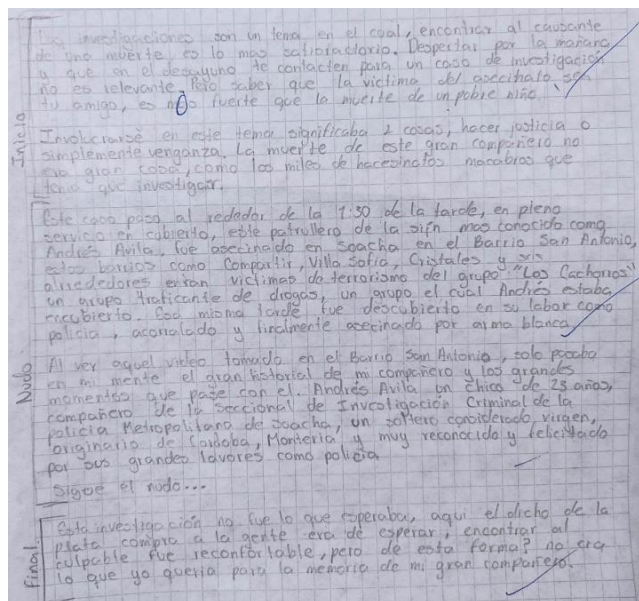 Las investigaciones son un tema en el cual, encontrar al causante
de una muerte es lo mas satisfactorio. Despertar por la mañana
y que en el desayuno te contacten para un caso de investigación
no es relevante. Pero saber que la victima del asecinato sea
tu amigo, es más fuerte que la muerte de un pobre niño.
Inicio
Involucrarse en este tema significaba 2 cosas, hacer justicia o
simplemente venganza. La muerte de este gran compañero no
era gran cosa, como los miles de hacesinatos macabros que
tenia que investigar.
Este caso paso al rededor de la 1:30 de la tarde, en pleno
servicio en cubierto, este patrullero de la sijin mas conocido como
Andrés Avila, fue asecinado en soacha en el Barrio San Antonio,
estos barrios como Compartir, Villa Sofia, Cristales y sus
alrededores eran victimas de terrorismo del grupo "Los Cachorros"
un grupo traficante de drogas, un grupo el cúal Andrés estaba
encubierto. Esa misma tarde fue descubierto en su labor como
policia, acorralado y finalmente asecinado por arma blanca.
Nudo
Al ver aquel video tomado en el Barrio San Antonio, solo pasaba
en mi mente el gran historial de mi compañero y los grandes
momentos que pase con el. Andrés Avila un chico de 23 años,
compañero de la seccional de Investigación Criminal de la
policia Metropolitana de soacha, un soltero considerado virgen,
originario de Cordoba, Monteria y muy reconocido y felicitado
por sus grandes lavores como policia
Sigue el nudo...
Final.
Esta investigación no fue lo que esperaba, aqui el dicho de la
plata compra a la gente era de esperar, encontrar al
culpable fue reconfortable, pero de esta forma? no era
lo que yo queria para la memoria de mi gran compañero.